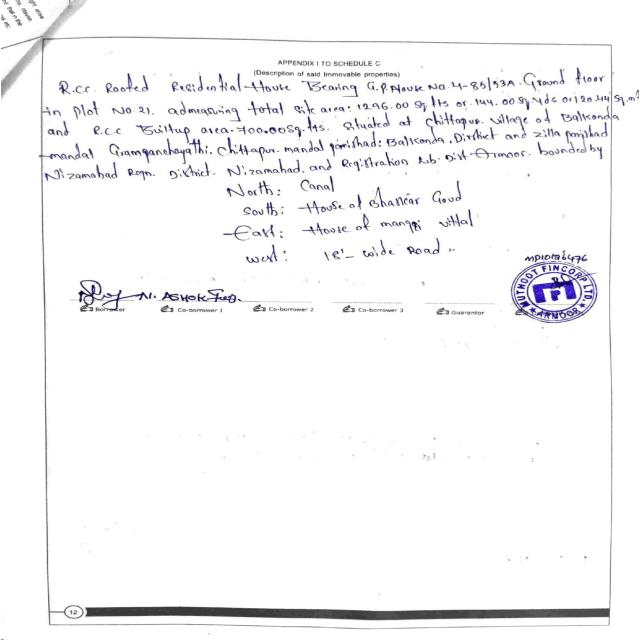 APPENDIX I TO SCHEDULE C
(Description of said Immovable properties)
R.Cc. Roofed Residential House Bearing G.P. House No. 4-85/53A. Ground floor
in Plot No. 21. admeasuring total site area: 1296.00 Sq fts or 144.00 Sq yds or 120.44 Sq.m
and R.C.C Builtup area-700.00 Sq.fts. Situated at Chittapur. Village of Balkonda
mandal Grampanchayathi. Chittapur. mandal parishad: Balkonda. District and zilla parishad
Nizamabad Regn. District. Nizamabad. and Registration Sub. Dist- Armoor. bounded by
North: Canal
South: House of Bhaskar Goud
East: House of vittal
west: 18'- wide Road
MP10176476
MUTHOOT FINCORP LTD.
ARMOOR
N. ASHOK
Borrower Co-borrower 1 Co-borrower 2 Co-borrower 3 Guarantor
12